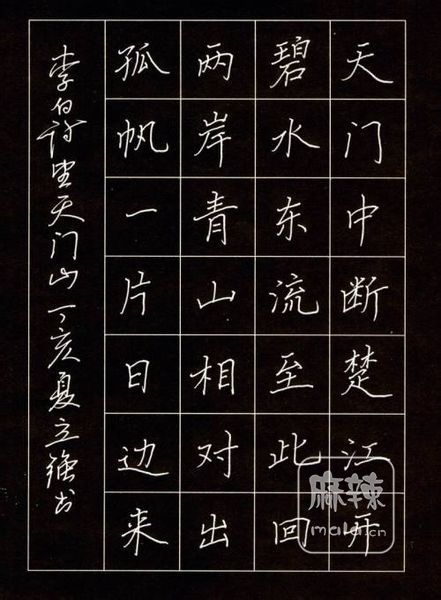 天门中断楚江开
碧水东流至此回
两岸青山相对出
孤帆一片日边来
李白诗望天门山丁亥夏立强书
麻辣
mala.cn